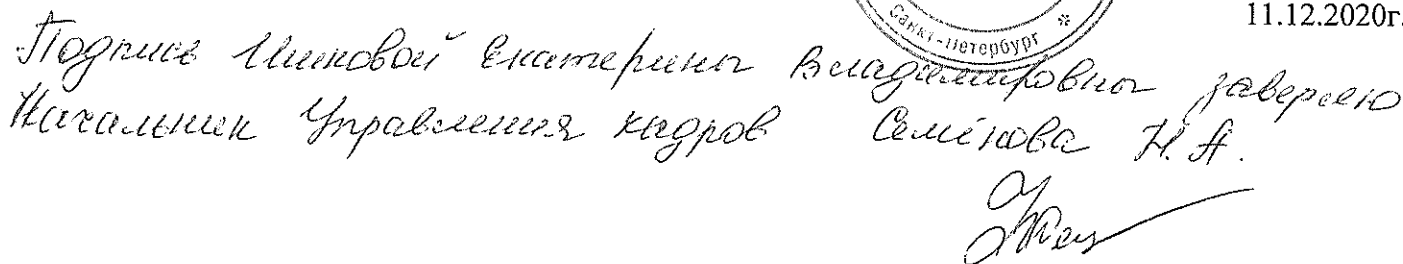 Санкт-Петербург *
11.12.2020г.
Подпись Шиковой Екатерины Владимировны заверяю
Начальник Управления кадров Семёнова Н.А.